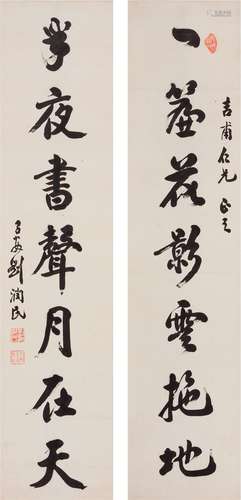 一簾花影雲拖地
吉甫仁兄正之
半夜書聲月在天
子安劉潤民